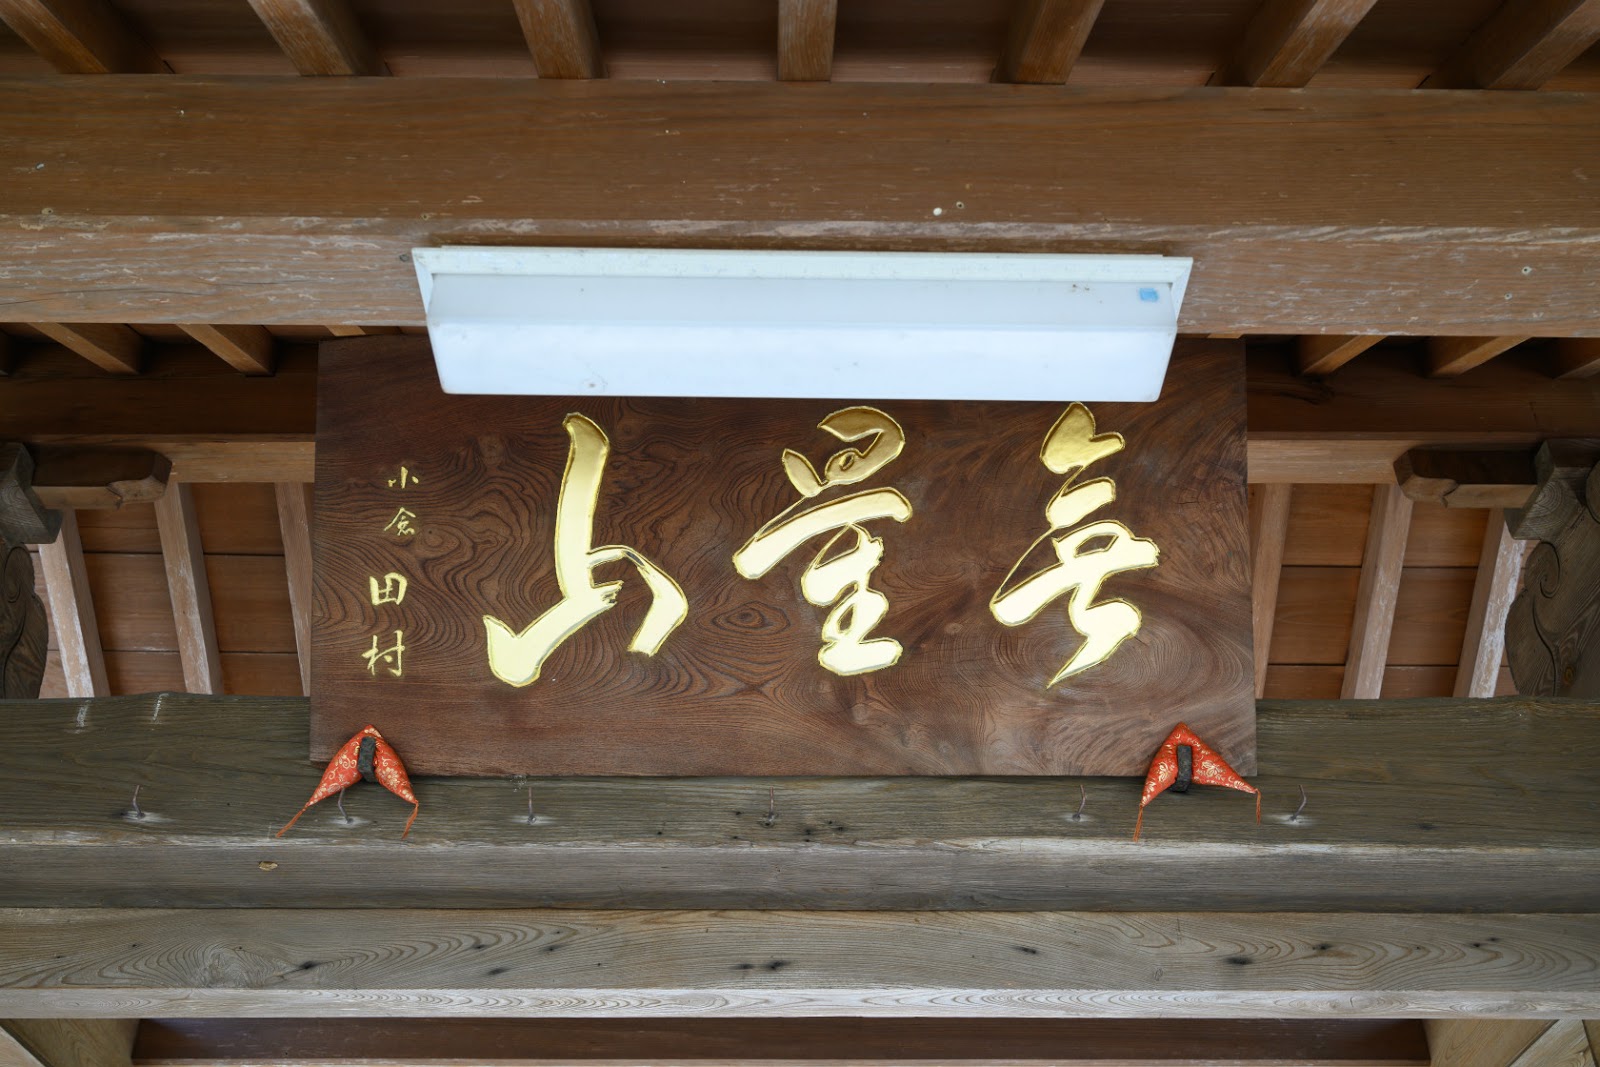 無量山
小倉 田村